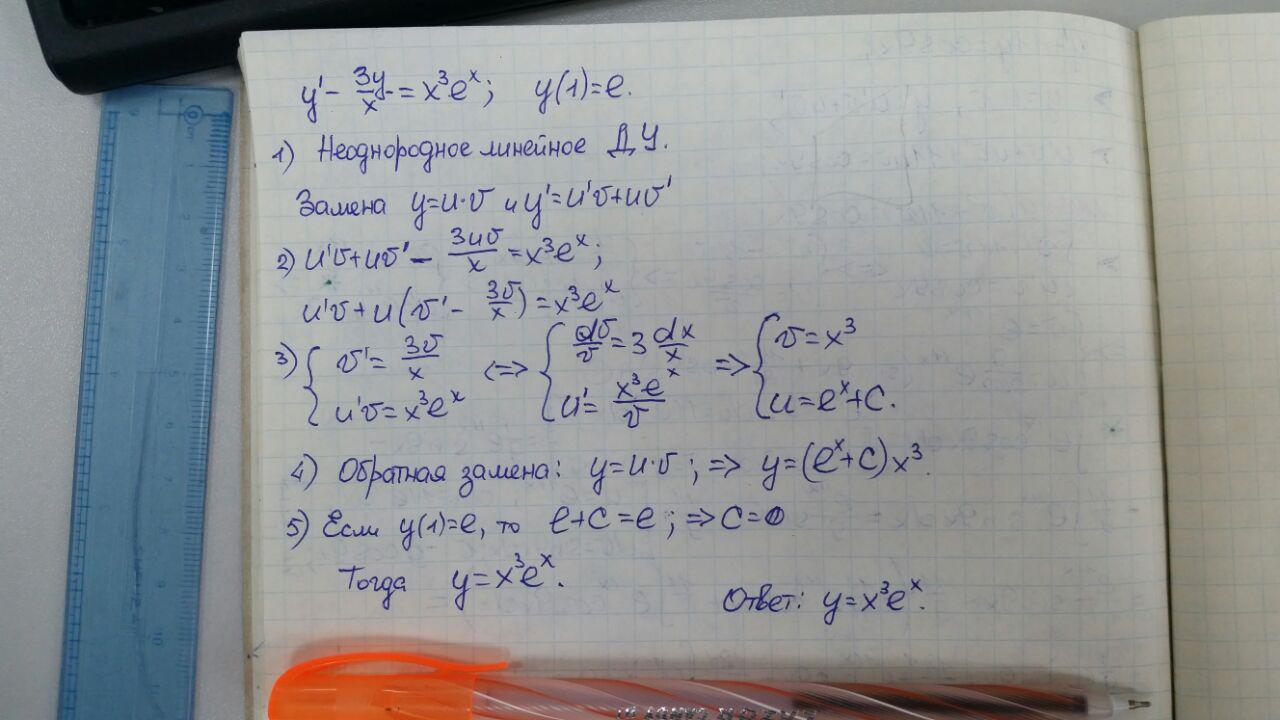 y' - 3y/x = x³eˣ; y(1)=e.
1) Неоднородное линейное ДУ.
Замена y=u·v и y'=u'v+uv'
2) u'v+uv' - 3uv/x = x³eˣ;
u'v+u(v' - 3v/x) = x³eˣ
3) { v' = 3v/x <=> { dv/v = 3 dx/x => { v=x³
u'v = x³eˣ u' = x³eˣ/v u=eˣ+C.
4) Обратная замена: y=u·v; => y=(eˣ+C)x³.
5) Если y(1)=e, то e+C=e; => C=0
Тогда y=x³eˣ.
Ответ: y=x³eˣ.